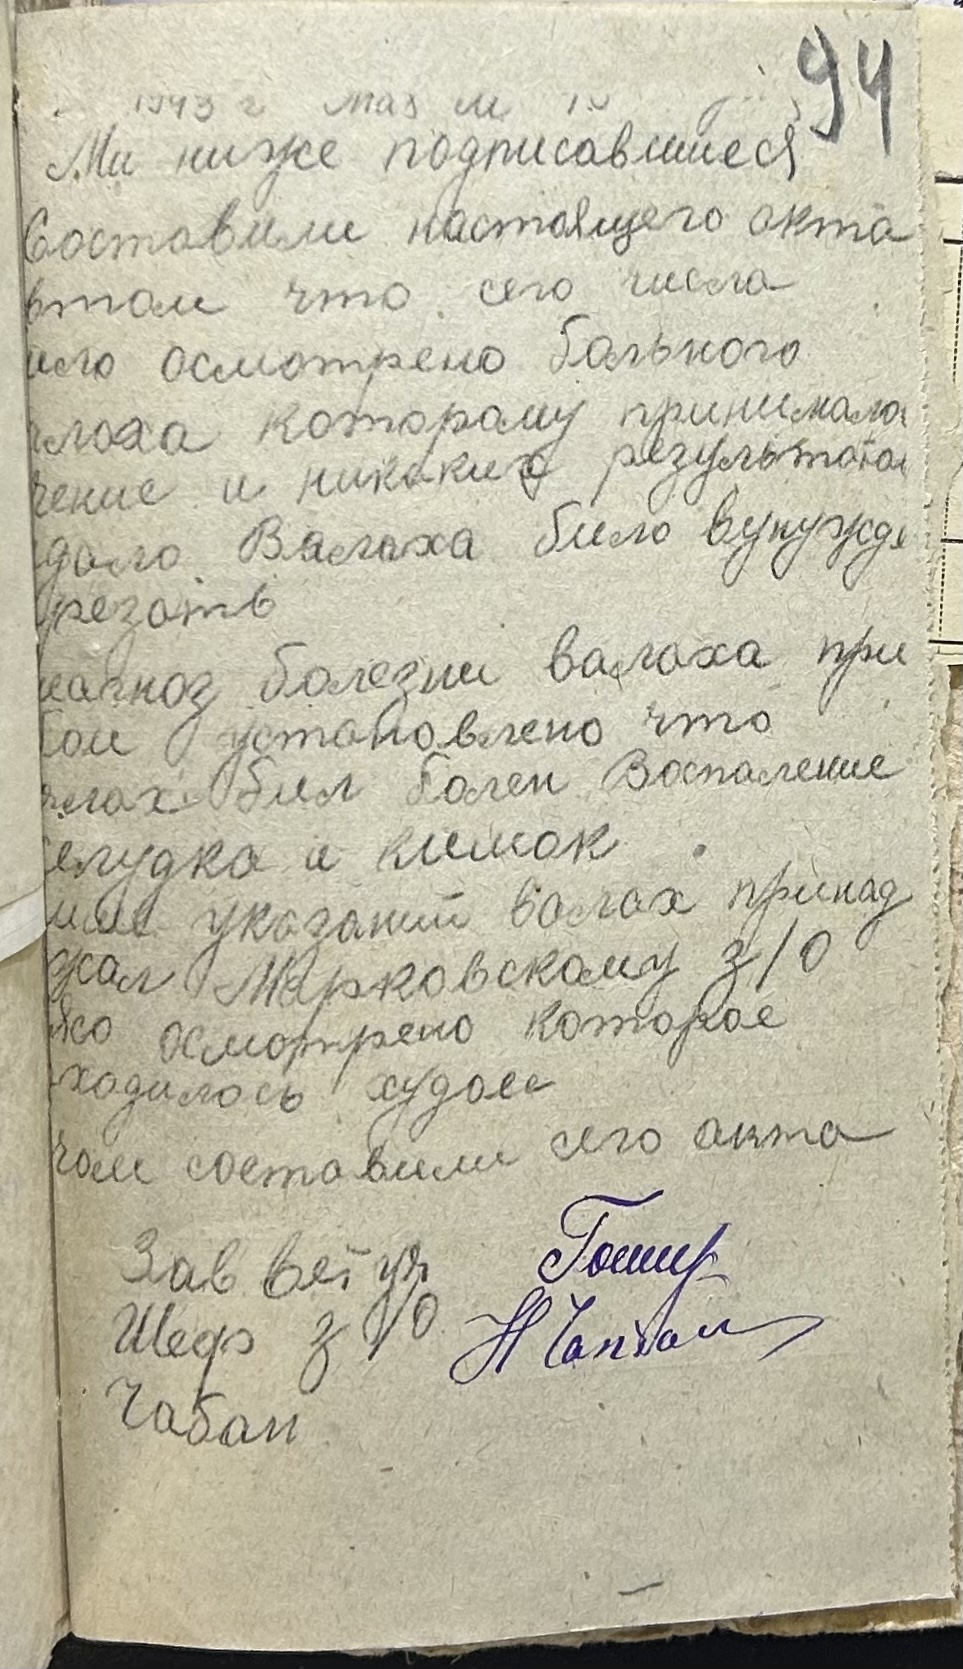 94
1943 г мая м
Ми ниже подписавшиеся
Составили настоящего акта
втом что сего числа
ило осмотрено больного
лоха которому принимало
чение и никаких результатов
дало Валаха било вунужде
резать
иагноз болезни валаха при
бои установлено что
лах бил болен Воспаление
елудка и кишок
указаний валах принад
жал Марковскому з/о
ясо осмотрено которое
ходилось худое
чом составили сего акта
Зав вет уч
Шеф з/о
Чабан